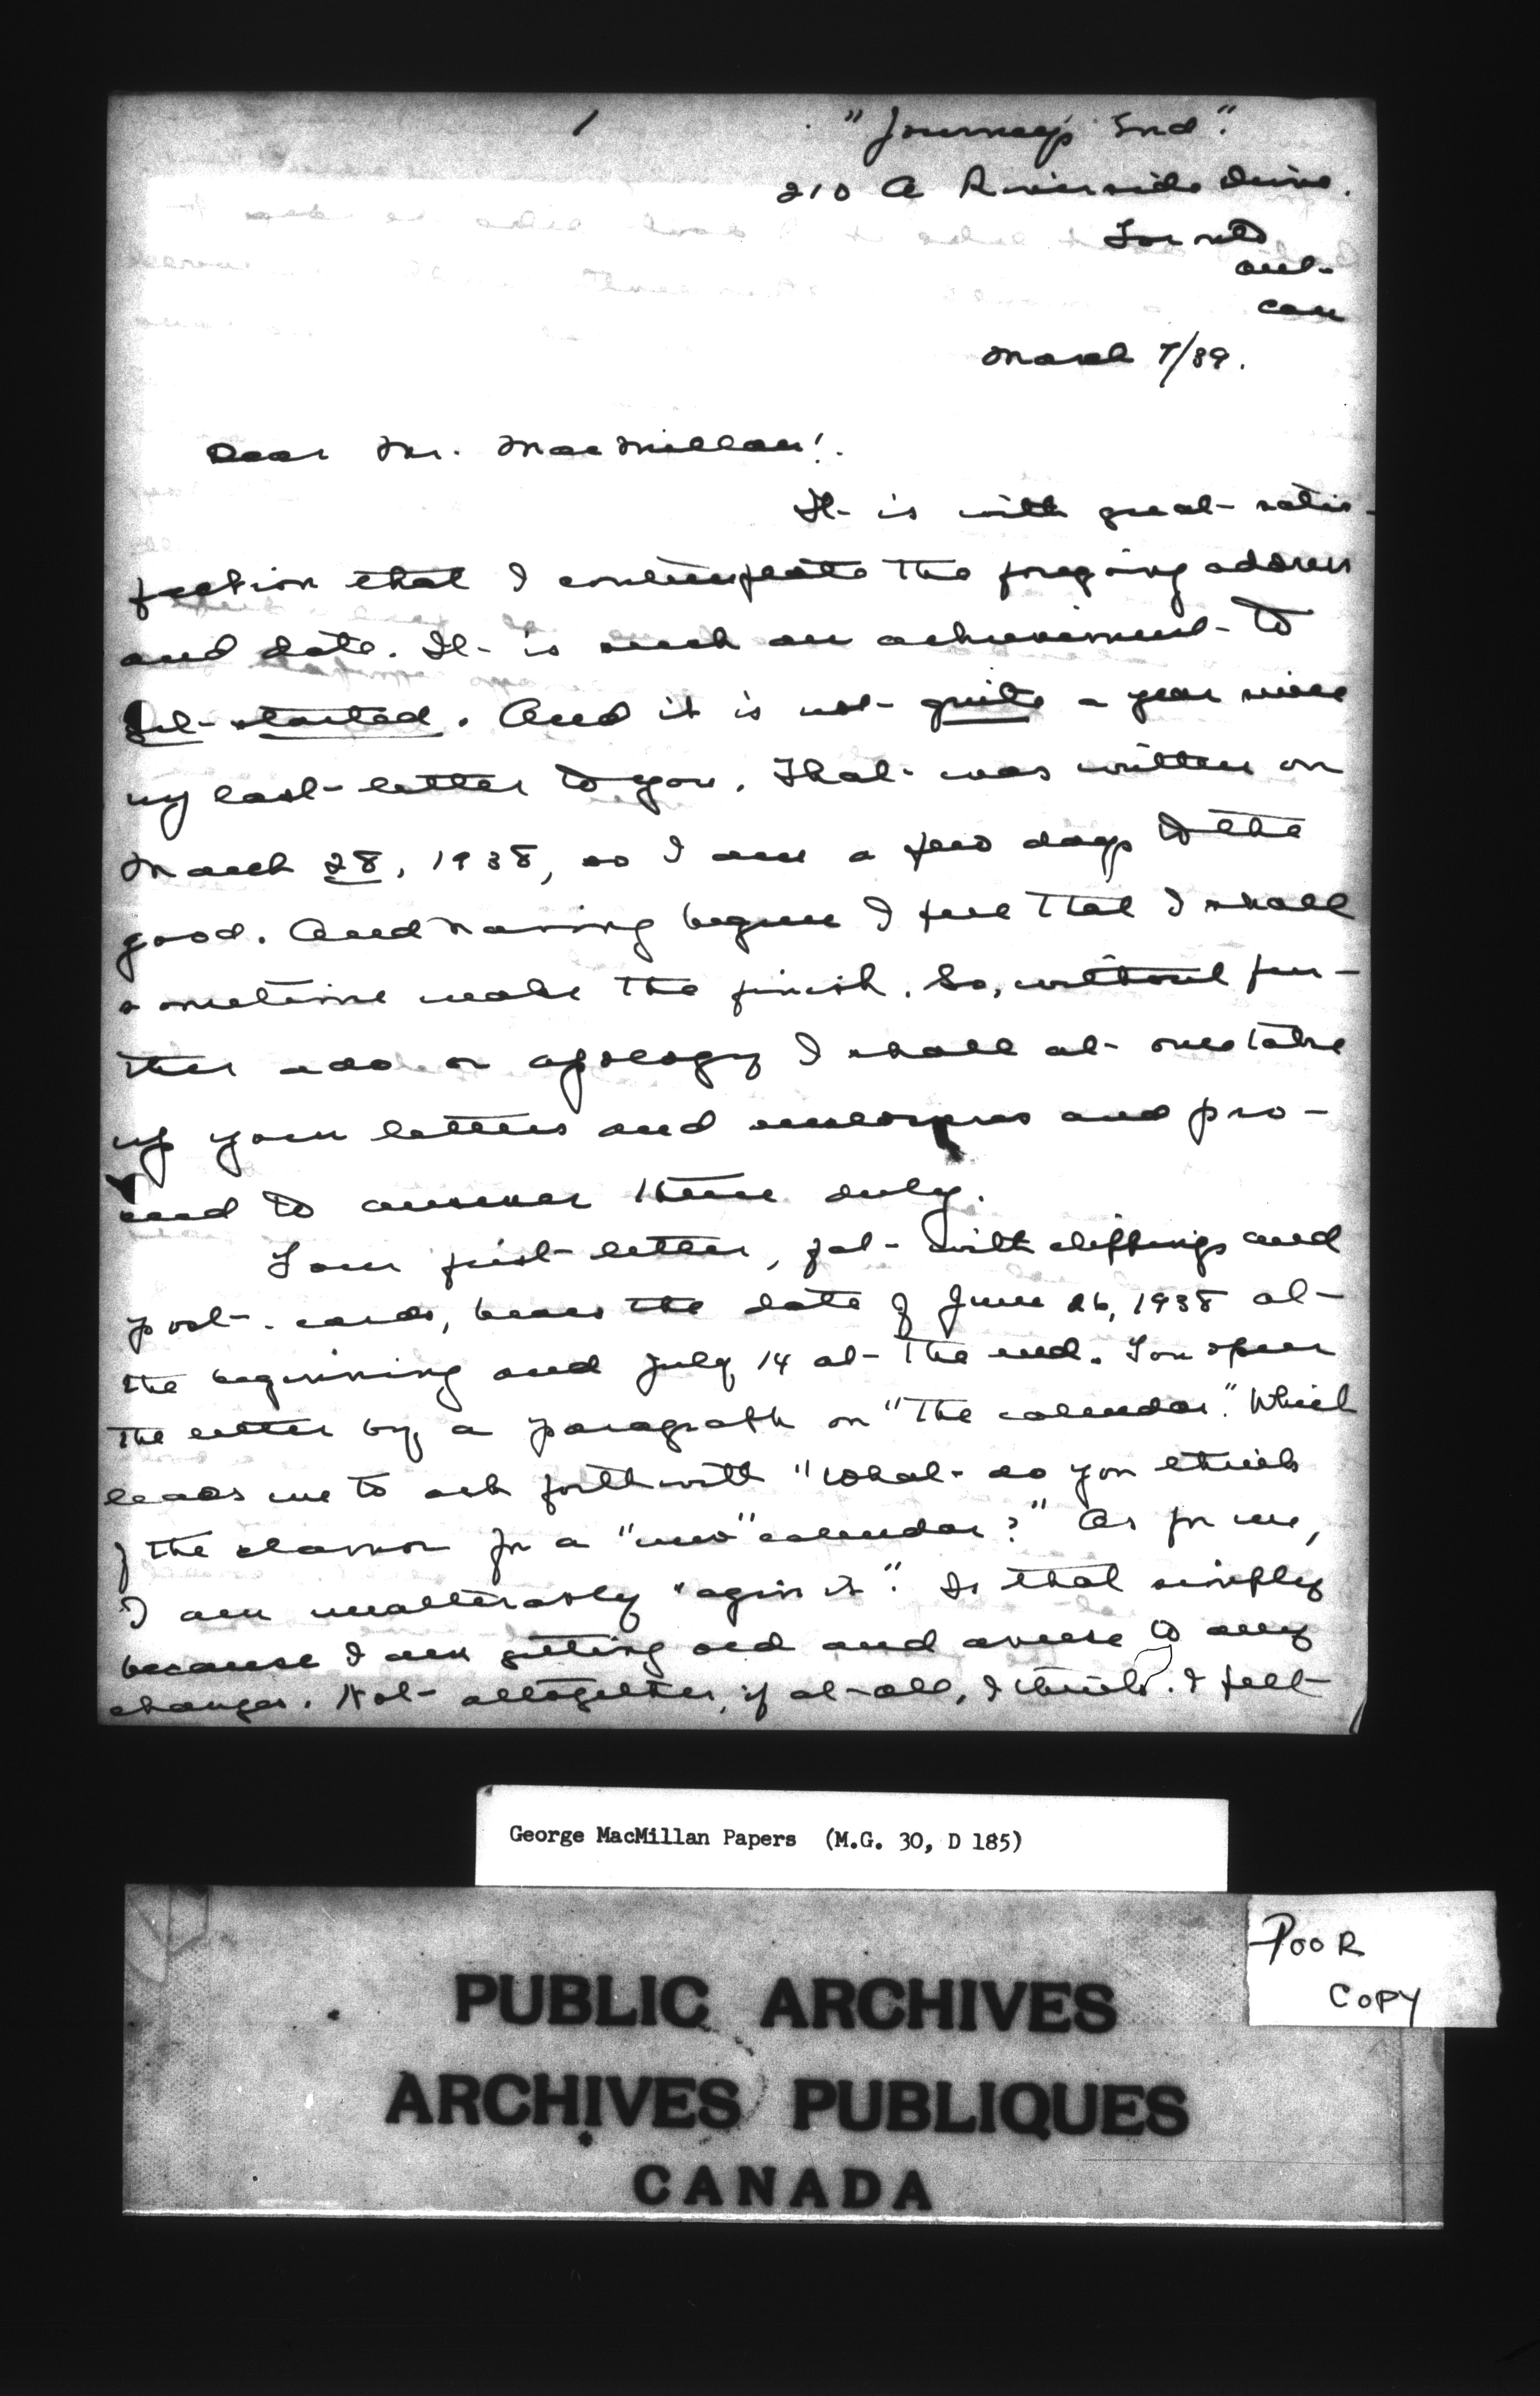 1
"Journey's End".
210 A Riverside Drive.
Toronto
Ont-
Can
March 7/39.
Dear Mr. MacMillan!.
It is with great satis-
faction that I contemplate the foregoing address
and date. It is such an achievement to
get started. And it is not quite a year since
my last letter to you. That was written on
March 28, 1938, so I am a few days to the
good. And having begun I feel that I shall
sometime make the finish. So, without fur-
ther ado or apology I shall at once take
up your letters and enclosures and pro-
ceed to answer them duly.
Your first letter, fat with clippings and
post-cards, bears the date of June 26, 1938 at
the beginning and July 14 at the end. You open
the letter by a paragraph on "The calendar." Which
leads me to ask forthwith "What do you think
of the clamor for a "new" calendar?" As for me,
I am unalterably "agin it". Is that simply
because I am getting old and averse to any
changes. Not altogether, if at all, I think. I felt
George MacMillan Papers (M.G. 30, D 185)
POOR
COPY
PUBLIC ARCHIVES
ARCHIVES PUBLIQUES
CANADA